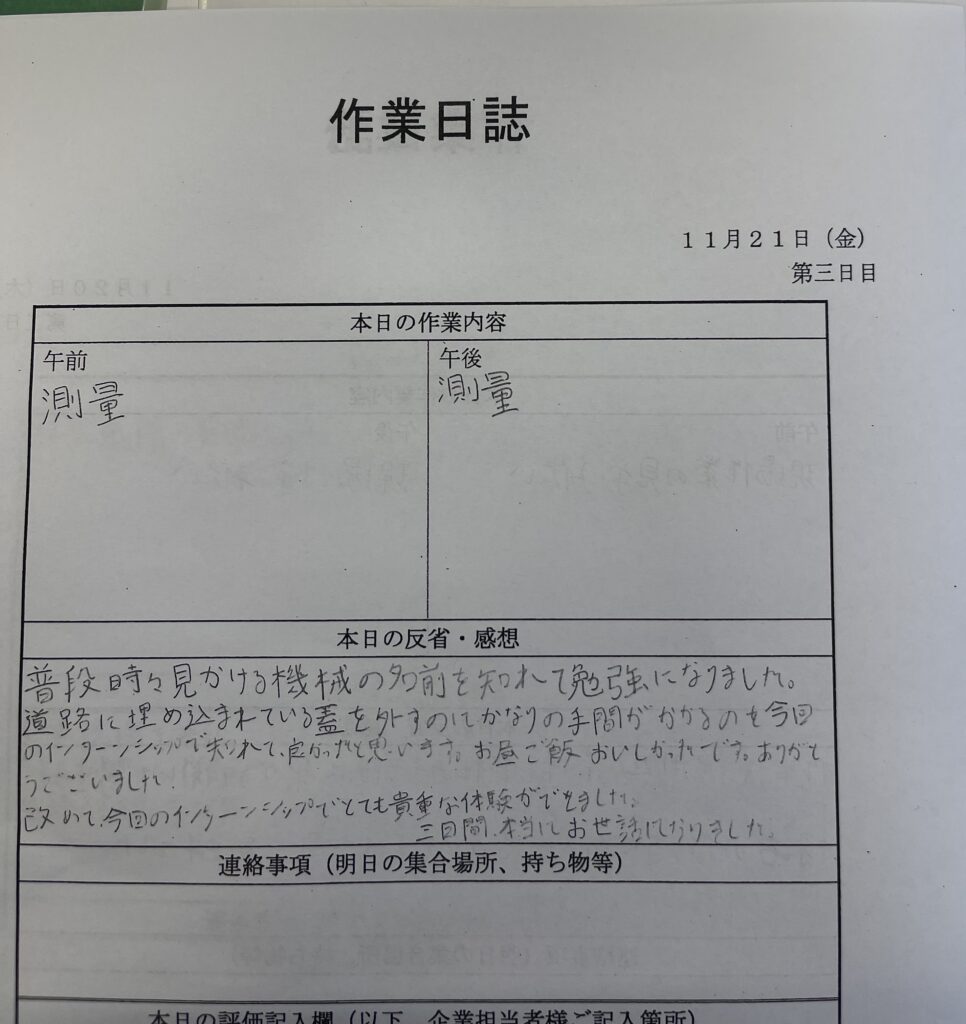 作業日誌
11月21日（金）
第三日目
本日の作業内容
午前
測量
午後
測量
本日の反省・感想
普段時々見かける機械の名前を知れて勉強になりました。
道路に埋め込まれている蓋を外すのにかなりの手間がかかるのを今回
のインターンシップで知れて、良かったと思います。お昼ご飯おいしかったです。ありがと
うございました。
改めて、今回のインターンシップでとても貴重な体験ができました。
三日間、本当にお世話になりました。
連絡事項（明日の集合場所、持ち物等）
本日の評価記入欄（以下、企業担当者様ご記入箇所）